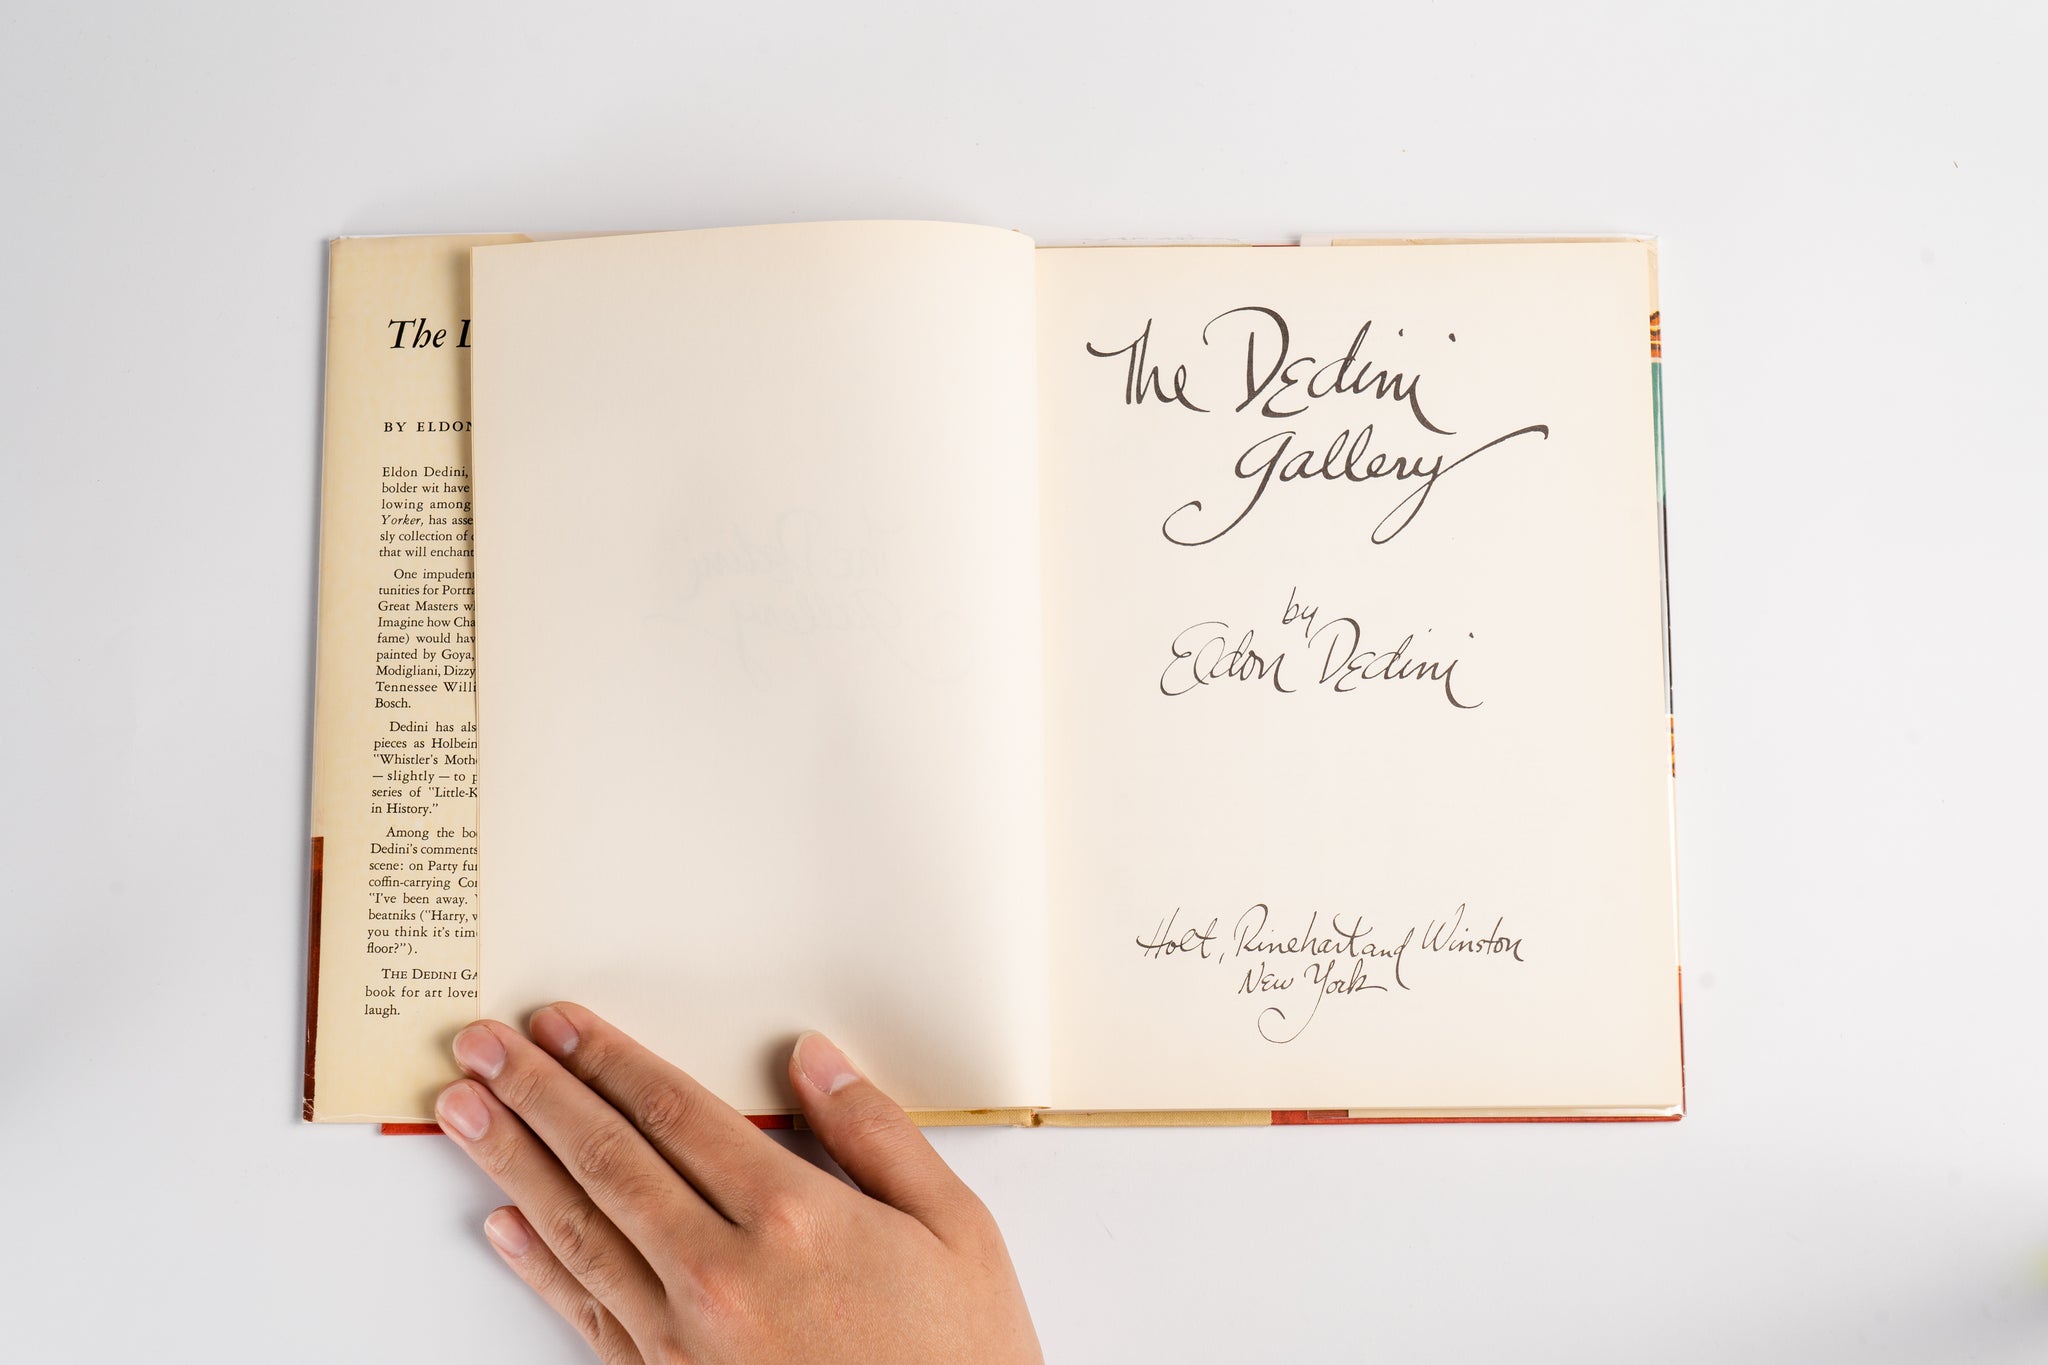 The
BY ELDON
Eldon Dedini,
bolder wit have
lowing among
Yorker, has asse
sly collection of
that will enchant
One impudent
tunities for Portra
Great Masters wi
Imagine how Cha
fame) would hav
painted by Goya,
Modigliani, Dizzy
Tennessee Willi
Bosch.
Dedini has als
pieces as Holbein
"Whistler's Moth
— slightly — to p
series of "Little-K
in History."
Among the bo
Dedini's comments
scene: on Party fu
coffin-carrying Co
"I've been away.
beatniks ("Harry, w
you think it's tim
floor?").
THE DEDINI GA
book for art lover
laugh.
The Dedini
Gallery
by
Eldon Dedini
Holt, Rinehart and Winston
New York